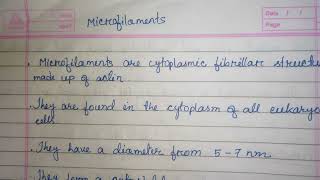 Microfilaments
Date / /
Page
. Microfilaments are cytoplasmic fibrillar structu
made up of actin.
. They are found in the cytoplasm of all eukaryo
cells
. They have a diameter from 5-7 nm
. They form a